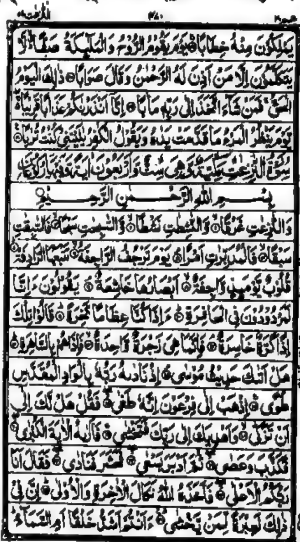 يَمْلِكُونَ مِنْهُ خِطَابًا ۝ يَوْمَ يَقُومُ الرُّوحُ وَالْمَلٰٓئِكَةُ صَفًّا ۙ لَّا
يَتَكَلَّمُونَ إِلَّا مَنْ أَذِنَ لَهُ الرَّحْمٰنُ وَقَالَ صَوَابًا ۝ ذٰلِكَ الْيَوْمُ
الْحَقُّ ۚ فَمَنْ شَاءَ اتَّخَذَ إِلٰى رَبِّهِ مَاٰبًا ۝ إِنَّا أَنْذَرْنٰكُمْ عَذَابًا قَرِيبًا ۚ
يَوْمَ يَنْظُرُ الْمَرْءُ مَا قَدَّمَتْ يَدٰهُ وَيَقُولُ الْكٰفِرُ يٰلَيْتَنِي كُنْتُ تُرٰبًا ۝
سُورَةُ النّٰزِعٰتِ مَكِّيَّةٌ وَهِيَ سِتٌّ وَأَرْبَعُونَ اٰيَةً
بِسْمِ اللّٰهِ الرَّحْمٰنِ الرَّحِيمِ
وَالنّٰزِعٰتِ غَرْقًا ۝ وَّالنّٰشِطٰتِ نَشْطًا ۝ وَّالسّٰبِحٰتِ سَبْحًا ۝ فَالسّٰبِقٰتِ
سَبْقًا ۝ فَالْمُدَبِّرٰتِ أَمْرًا ۝ يَوْمَ تَرْجُفُ الرَّاجِفَةُ ۝ تَتْبَعُهَا الرَّادِفَةُ ۝
قُلُوبٌ يَّوْمَئِذٍ وَّاجِفَةٌ ۝ أَبْصَارُهَا خَاشِعَةٌ ۝ يَقُولُونَ ءَإِنَّا
لَمَرْدُودُونَ فِي الْحَافِرَةِ ۝ ءَإِذَا كُنَّا عِظَامًا نَّخِرَةً ۝ قَالُوا تِلْكَ
إِذًا كَرَّةٌ خَاسِرَةٌ ۝ فَإِنَّمَا هِيَ زَجْرَةٌ وَّاحِدَةٌ ۝ فَإِذَا هُمْ بِالسَّاهِرَةِ ۝
هَلْ أَتٰىكَ حَدِيثُ مُوسٰى ۝ إِذْ نَادٰىهُ رَبُّهُ بِالْوَادِ الْمُقَدَّسِ
طُوًى ۝ اِذْهَبْ إِلٰى فِرْعَوْنَ إِنَّهُ طَغٰى ۝ فَقُلْ هَلْ لَّكَ إِلٰى
أَنْ تَزَكّٰى ۝ وَأَهْدِيَكَ إِلٰى رَبِّكَ فَتَخْشٰى ۝ فَأَرٰىهُ الْاٰيَةَ الْكُبْرٰى ۝
فَكَذَّبَ وَعَصٰى ۝ ثُمَّ أَدْبَرَ يَسْعٰى ۝ فَحَشَرَ فَنَادٰى ۝ فَقَالَ أَنَا
رَبُّكُمُ الْأَعْلٰى ۝ فَأَخَذَهُ اللّٰهُ نَكَالَ الْاٰخِرَةِ وَالْأُولٰى ۝ إِنَّ فِي
ذٰلِكَ لَعِبْرَةً لِّمَنْ يَّخْشٰى ۝ ءَأَنْتُمْ أَشَدُّ خَلْقًا أَمِ السَّمَاءُ